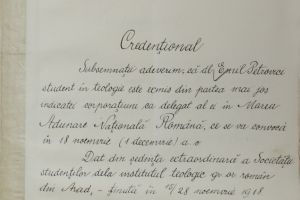 Credențional
Subsemnații adeverim, că dl. Emil Petrovici
student în teologie este remis din partea mai jos
indicatei corporațiuni ca delegat al ei în Marea
Adunare Națională Română, ce se va convoca
în 18 noemvrie (1 decemvrie) a. c.
Dat din ședința extraordinară a Societății
studenților dela institutul teologic gr. or. român
din Arad, - ținută în 15/28 noemvrie 1918